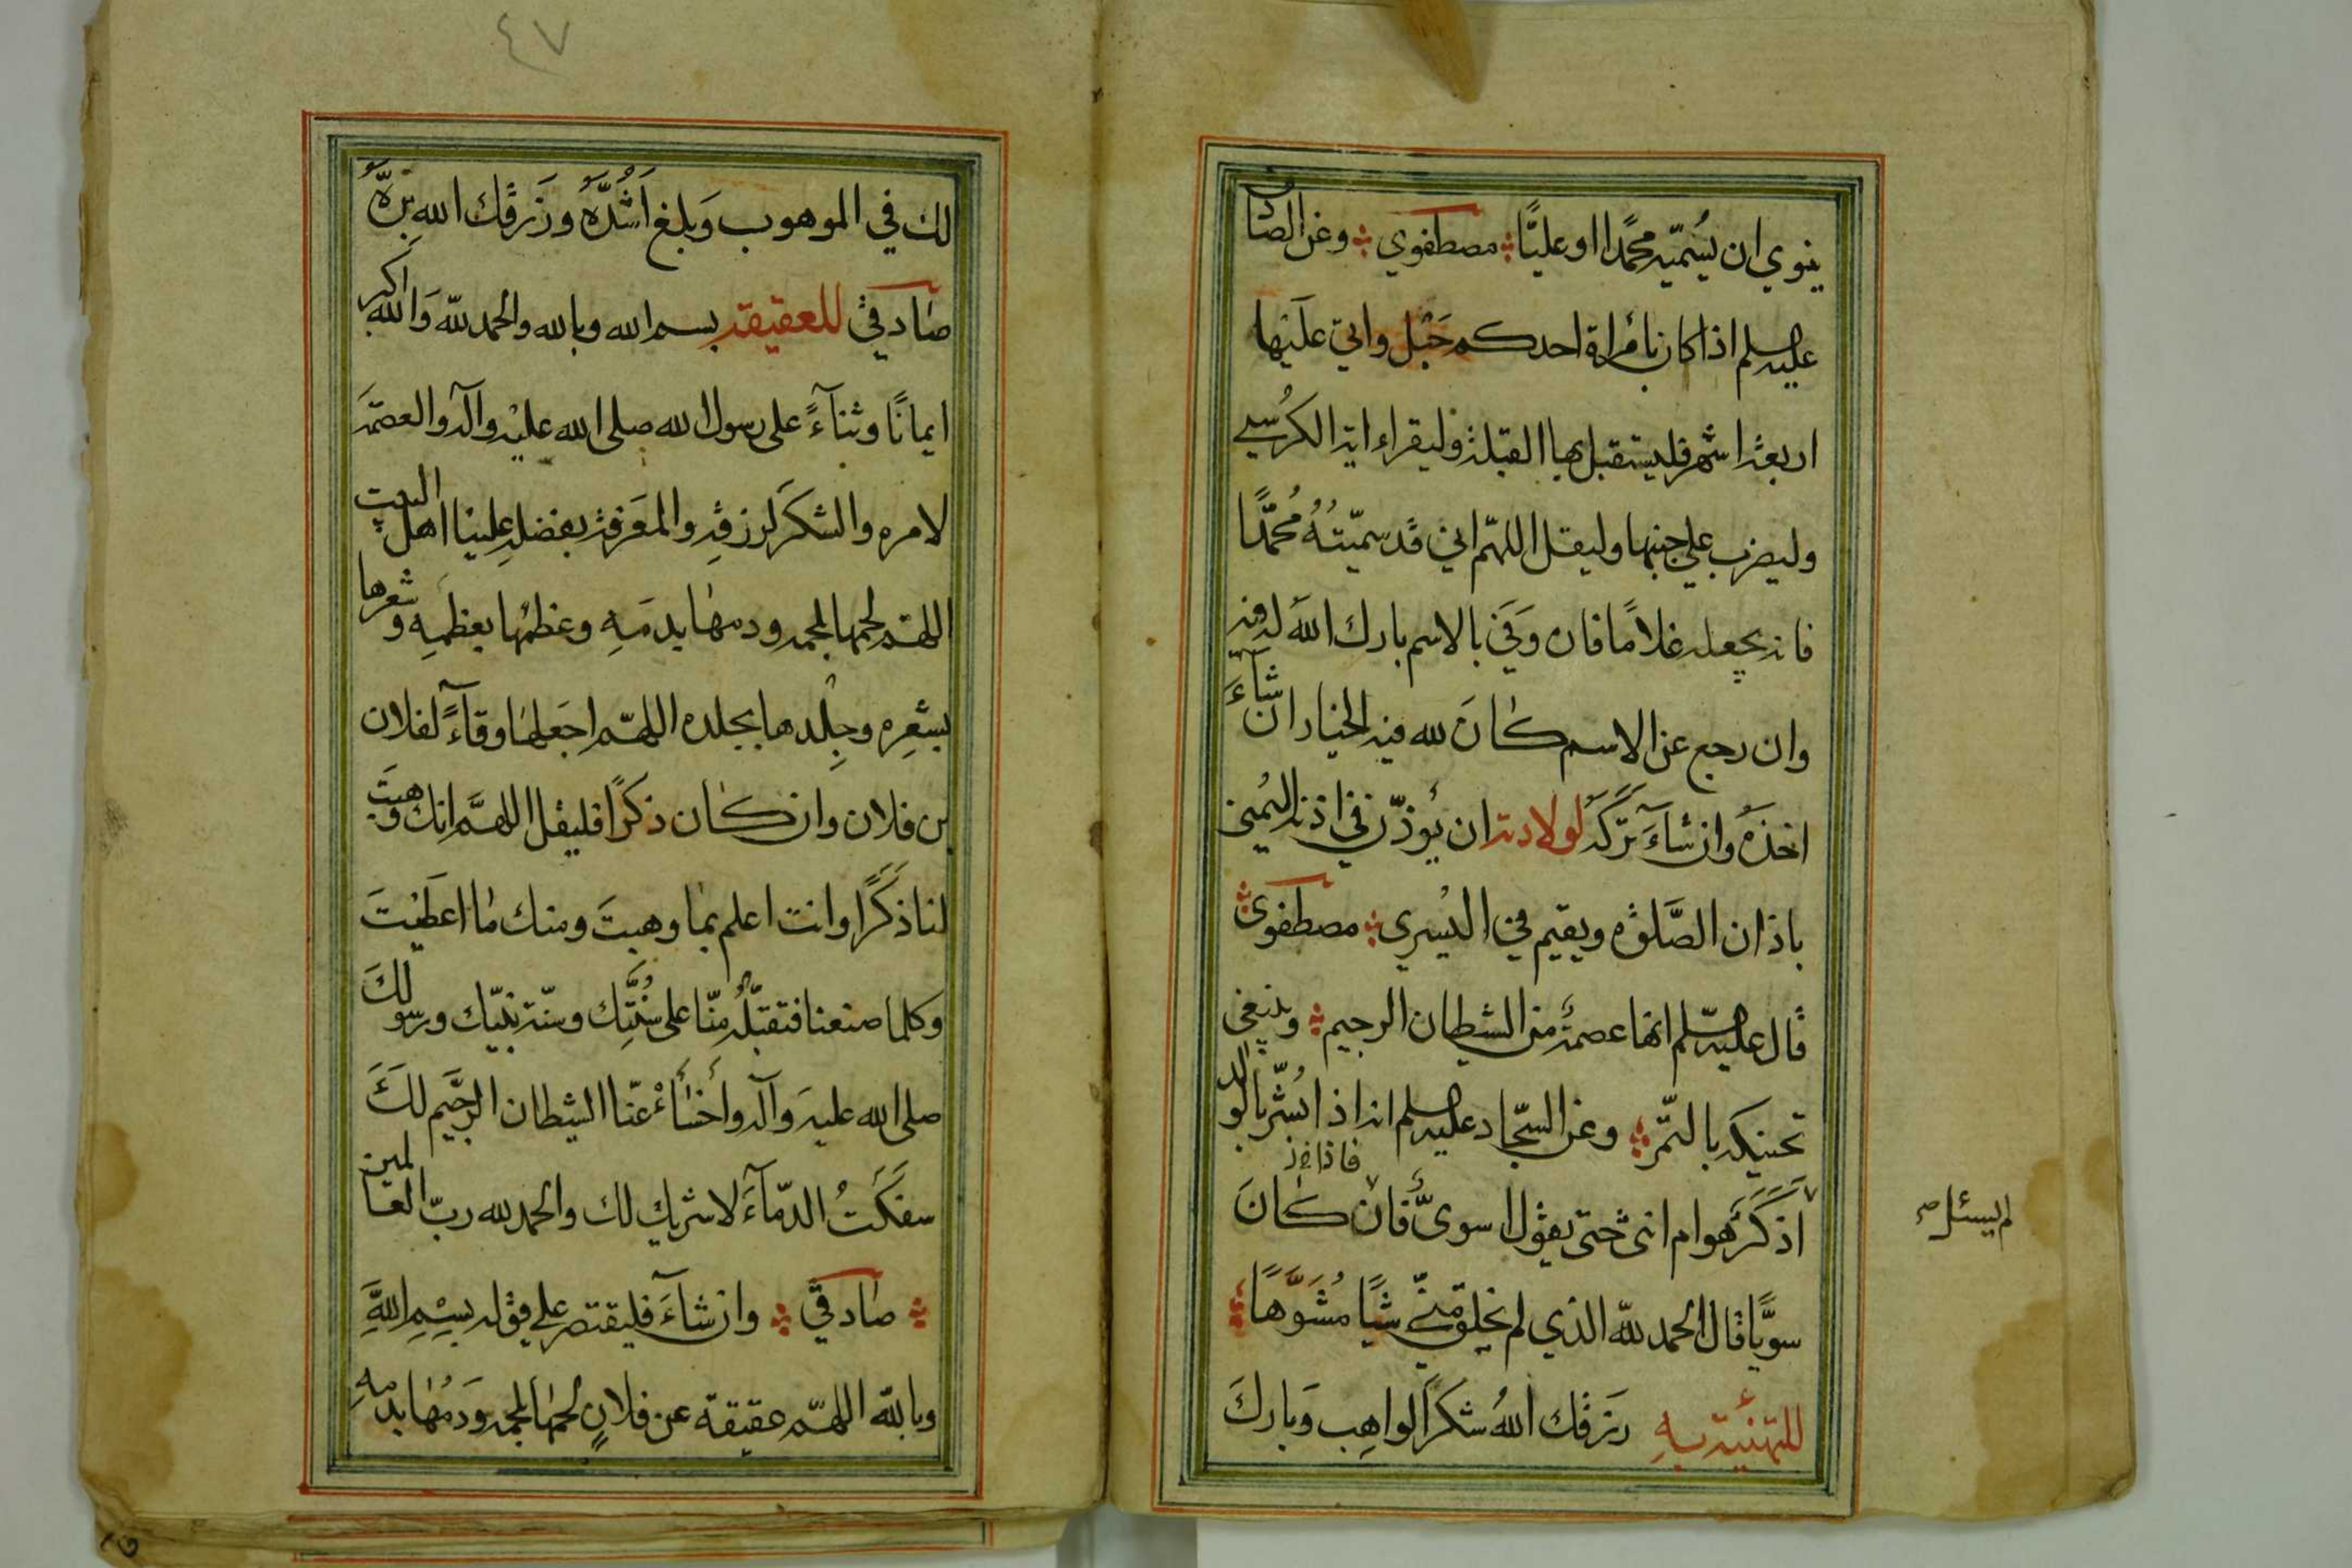 ينوي ان يُسمّيه محمدًا او عليًّا مصطفوي وعن الصاد
عليه السلم اذا كان بامراة احدكم حَبَل واتي علَيها
اربعة اشهر فليستقبل بها القبلة وليقراء اية الكرُسي
وليضرب علي جنبها وليقل اللهّم اني قد سميّتهُ محُمّدًا
فانه يجعله غلامًا فان وَفي بالاسم بارك اللهَ له فيه
وان رجع عن الاسم كانَ لله فيه الخيار ان شآءَ
اخذهَ وان شاءَ تركَهَ لولادته ان يُوذّن في اذنه اليُمني
باذان الصَّلوة ويقيم في اليُسري مصطفوي
قال عليه السّلم انها عصمةٌ من الشيطان الرجيم وينبغي
تحنيكه بالتّمر وعن السّجاد عليه السلم انه اذا بُشّر بالولد
لم يسئل صح
اَذكَرٌ هو ام انثي حتي يقول اسويٌّ فان كانَ
فاذا
سويًّا قال الحمد للهّ الذي لم يخلق منّي شيًا مُشَوَّهًا
للتهنئة به رزقك اللهُ شكرَ الواهِب وَبارك
٤٧
لك في الموهوب وَبلغ اَشُدَّهُ ورَزقك الله برّهُ
صادقي للعقيقة بسم الله وبالله والحمد للهّ وَالله اكبر
ايمانًا وثنآءً علي رسول الله صلي الله عليْه وآله والعصمَة
لامره والشكرَ لرزقهِ والمعَرفة بفضلهِ علينا اهل البيت
اللهمّ لحمها بلحمه ودمها بدمَهِ وعظمُها بعظمِه وشعرها
بشعرِه وجِلدها بجلده اللهمّ اجعَلها وقآءً لفلان
بن فلان وان كان ذكرًا فليقل اللهمَّ انك وَهبتَ
لنا ذكَرًا وانت اعلم بما وهبتَ ومنك ما اعَطيْتَ
وكلما صنعنا فتقبّلهُ منّا علي سُنّتِك وسنّة نبيّك ورسولكَ
صلي الله عليهَ وآله واخسَأْ عنّا الشيطان الرجَيم لكَ
سفَكَتُ الدّمآءَ لا شريك لك والحمد لله ربّ العالمين
صادقي وان شآءَ فليقتصر علي قوله بسِْمِ اللهَّ
وبالله اللهمّ عقيقة عن فلانٍ لحمها بلحمه وَدمُها بدمهِ